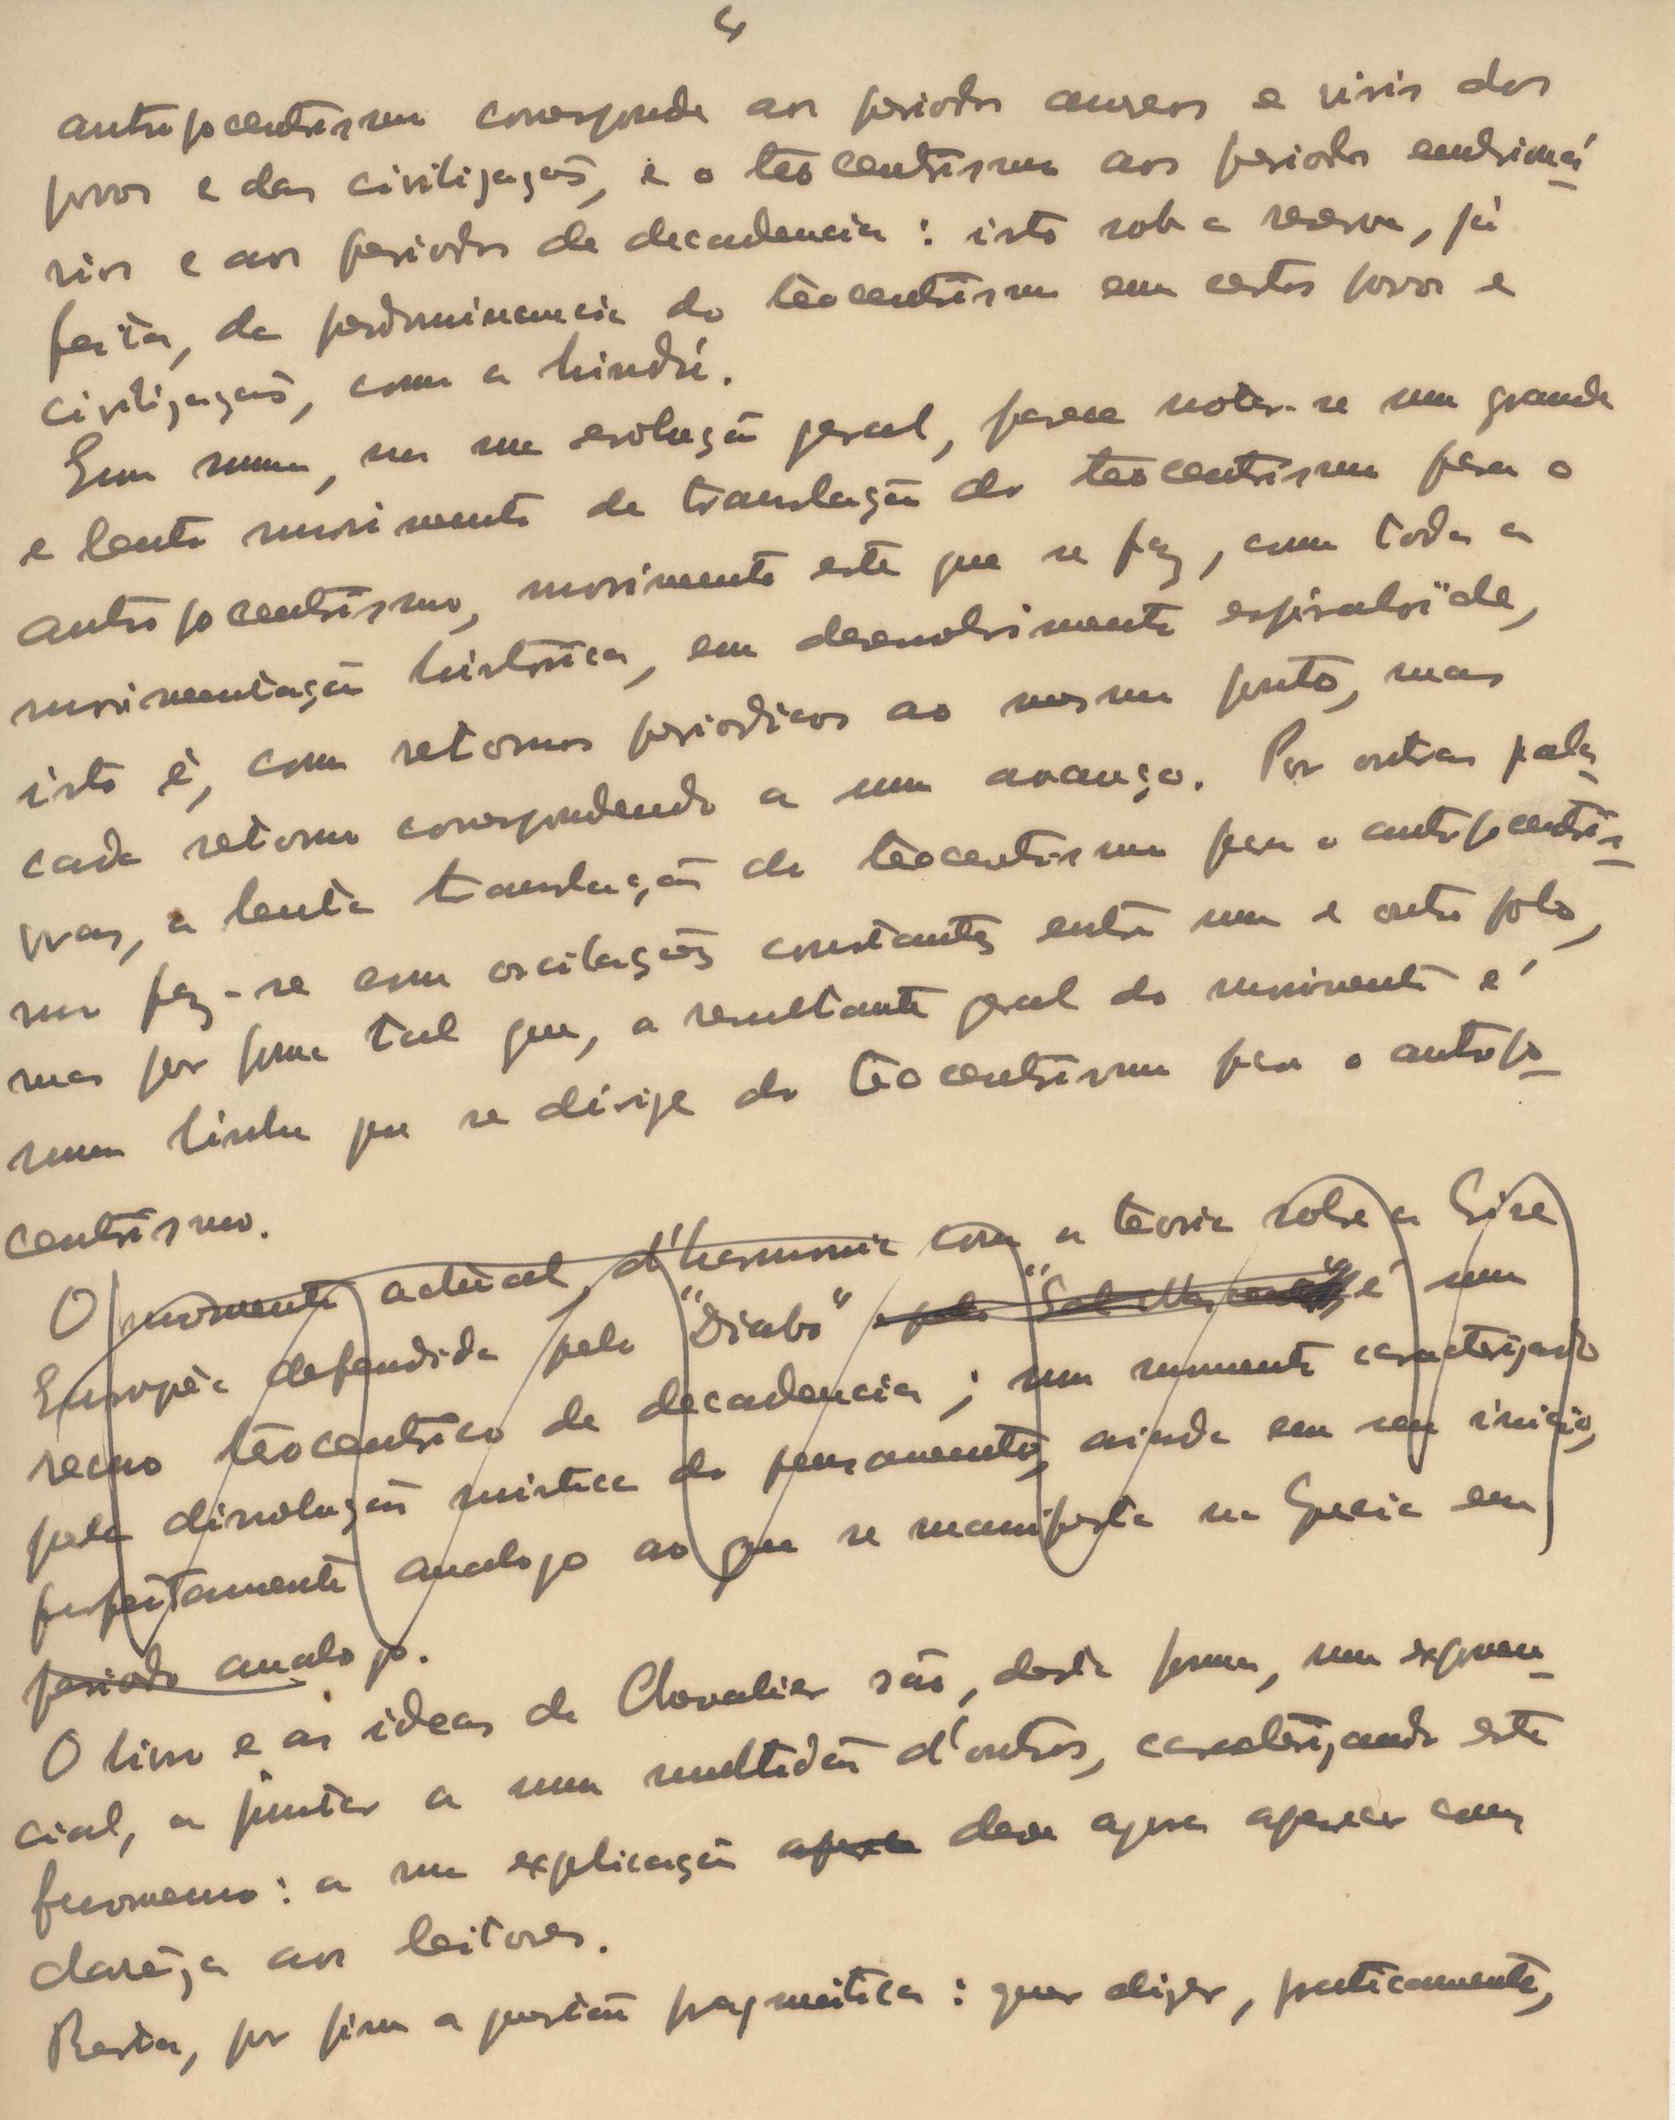 antropocentrismo corresponde aos periodos aureos e viris dos
povos e das civilizações, e o teocentrismo aos periodos embrioná
rios e aos periodos de decadencia: isto sob a reserva, já
feita, da predominancia do teocentrismo em certos povos e
civilizações, como a hindú.
Em suma, na sua evolução geral, parece notar-se um grande
e lento movimento de translação do teocentrismo para o
antropocentrismo, movimento este que se faz, como toda a
movimentação histórica, em desenvolvimento espiraloïde,
isto é, com retornos periodicos ao mesmo ponto, mas
cada retorno correspondendo a um avanço. Por outras pala
vras, a lenta translação do teocentrismo para o antropocentris
mo faz-se com oscilações constantes entre um e outro polo,
mas por forma tal que, a resultante geral do movimento é
uma linha que se dirige do teocentrismo para o antropo
centrismo.
O momento actual, d'harmonia com a teoria sobre a Crise
Europêa defendida pelo "Diabo" pelo "Sol Nascente", é um
recuo teocentrico de decadencia; um momento caracterizado
pela dissolução mistica do pensamento, ainda em seu inicio,
perfeitamente analogo ao que se manifesta na Grecia em
periodo analogo.
O livro e as ideas de Chevalier são, desta forma, um exponen
cial, a juntar a uma multidão d'outros, caracterizando este
fenomeno: a sua explicação deve agora aparecer com
clarêza aos leitores.
Resta, por fim a questão pragmática: quer dizer, praticamente,